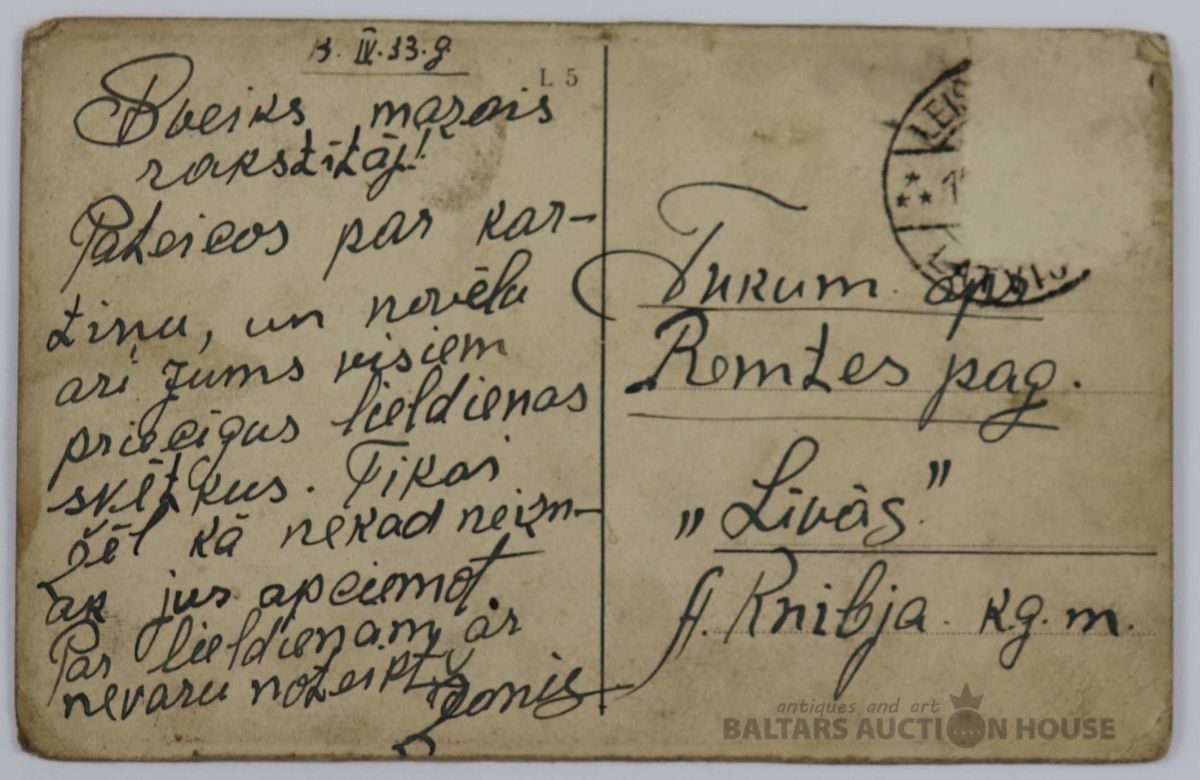 13. IV. 33. g.
L 5
Sveiks mazais
rakstītāj!
Pateicos par kar-
tiņu, un novēlu
arī Jums visiem
priecīgus lieldienas
svētkus. Tikai
žēl kā nekad neizn-
āk jus apciemot.
Par lieldienam ar
nevaru noteikt
Jonis
Tukum. apr
Remtes pag.
„Līvās"
A. Knibja k.g.m.
antiques and art
BALTARS AUCTION HOUSE